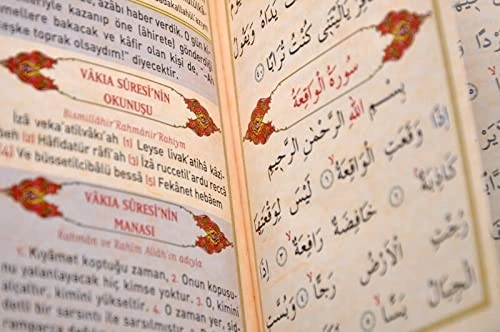 azâbı haber verdik. O gün ki-
kazanıp öne (âhirete) gönderdiği
bakacak ve kâfir kişi de,
toprak olsaydım!" diyecektir.
VÂKIA SÛRESİ'NİN
OKUNUŞU
Bismillâhir'Rahmânir'Rahîym
İzâ veka'atilvâkı'ah [1] Leyse livak'atihâ kâzi-
beh [2] Hâfidatür râfi'ah [3] İzâ ruccetil'ardu reccâ
[4] Ve büssetilcibâlü bessâ [5] Fekânet hebâem
VÂKIA SÛRESİ'NİN
MANASI
Rahmân ve Rahîm Allâh'ın adıyla
1. Kıyâmet koptuğu zaman, 2. Onun kopuşu-
nu yalanlayacak hiç kimse yoktur. 3. O, kimini
alçaltır, kimini yükseltir. 4. O zaman yer, şid-
detli bir sarsıntı ile sarsılmıştır.
يَدَاهُ وَيَقُولُ
الْكَافِرُ يَالَيْتَنِي كُنْتُ تُرَابًا ٤٠
سُورَةُ الْوَاقِعَةِ
بِسْمِ اللهِ الرَّحْمٰنِ الرَّحِيمِ
إِذَا وَقَعَتِ الْوَاقِعَةُ ١ لَيْسَ لِوَقْعَتِهَا
كَاذِبَةٌ ٢ خَافِضَةٌ رَافِعَةٌ ٣ إِذَا
رُجَّتِ الْاَرْضُ رَجًّا ٤ وَبُسَّتِ
الْجِبَالُ بَسًّا ٥